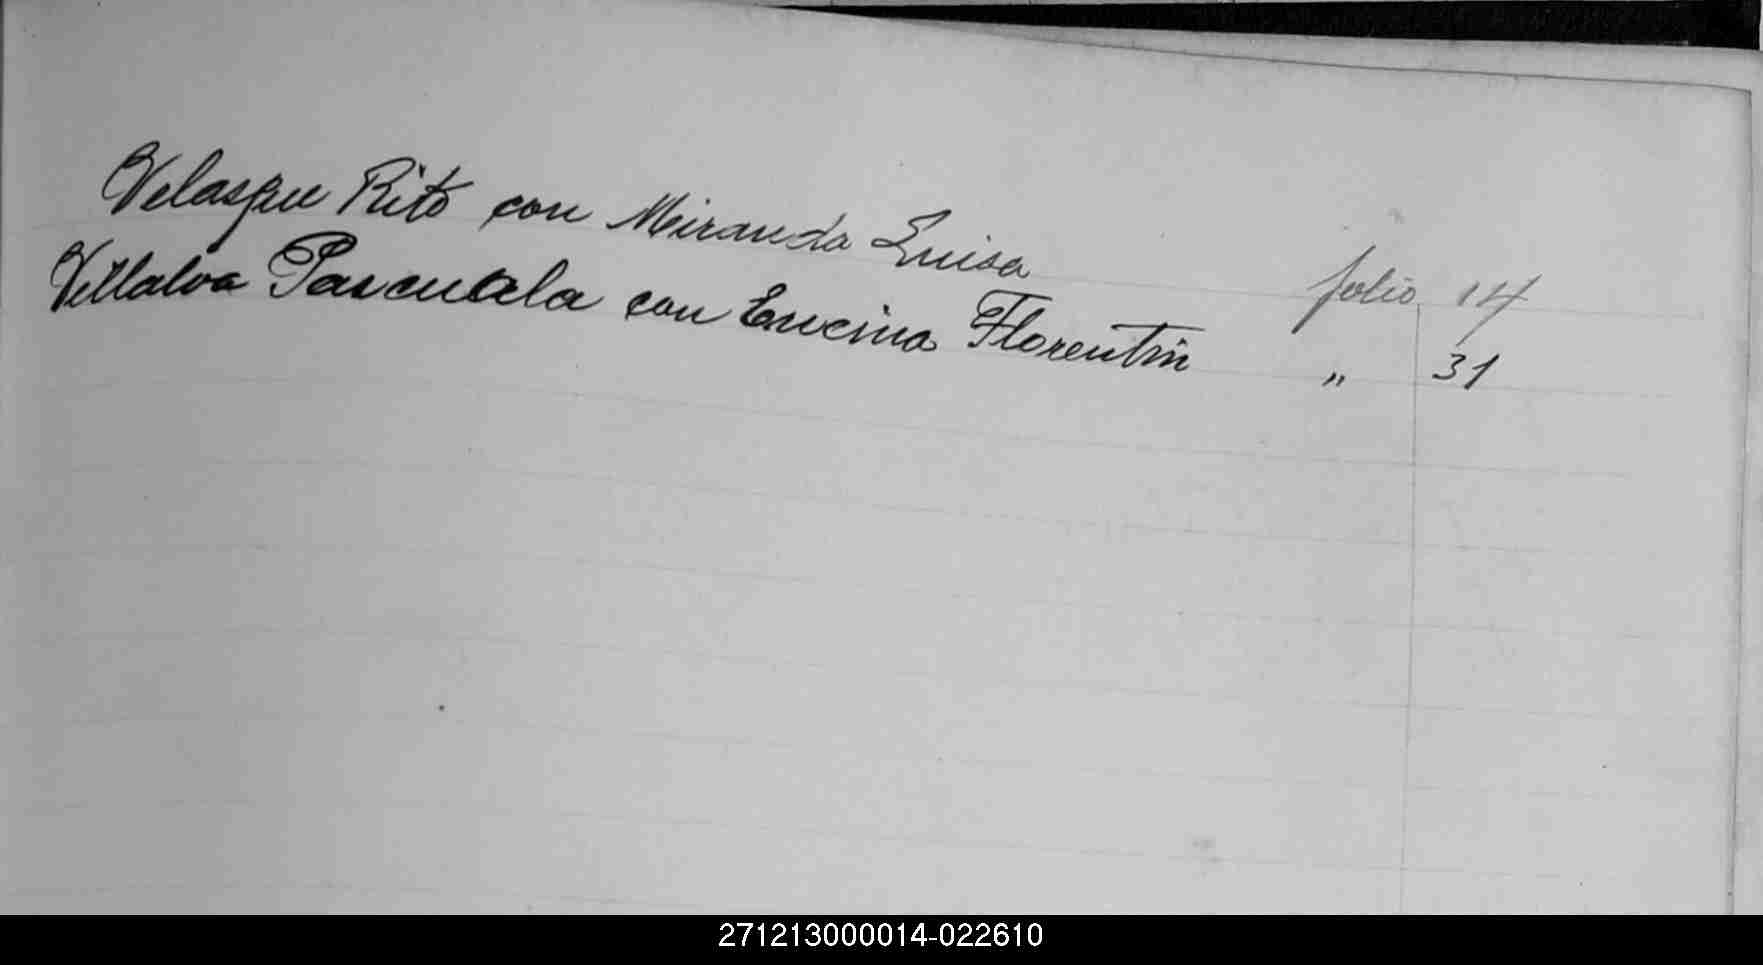 Velasque Rito con Miranda Luisa folio 14
Villalva Pascuala con Encina Florentin " 31
271213000014-022610